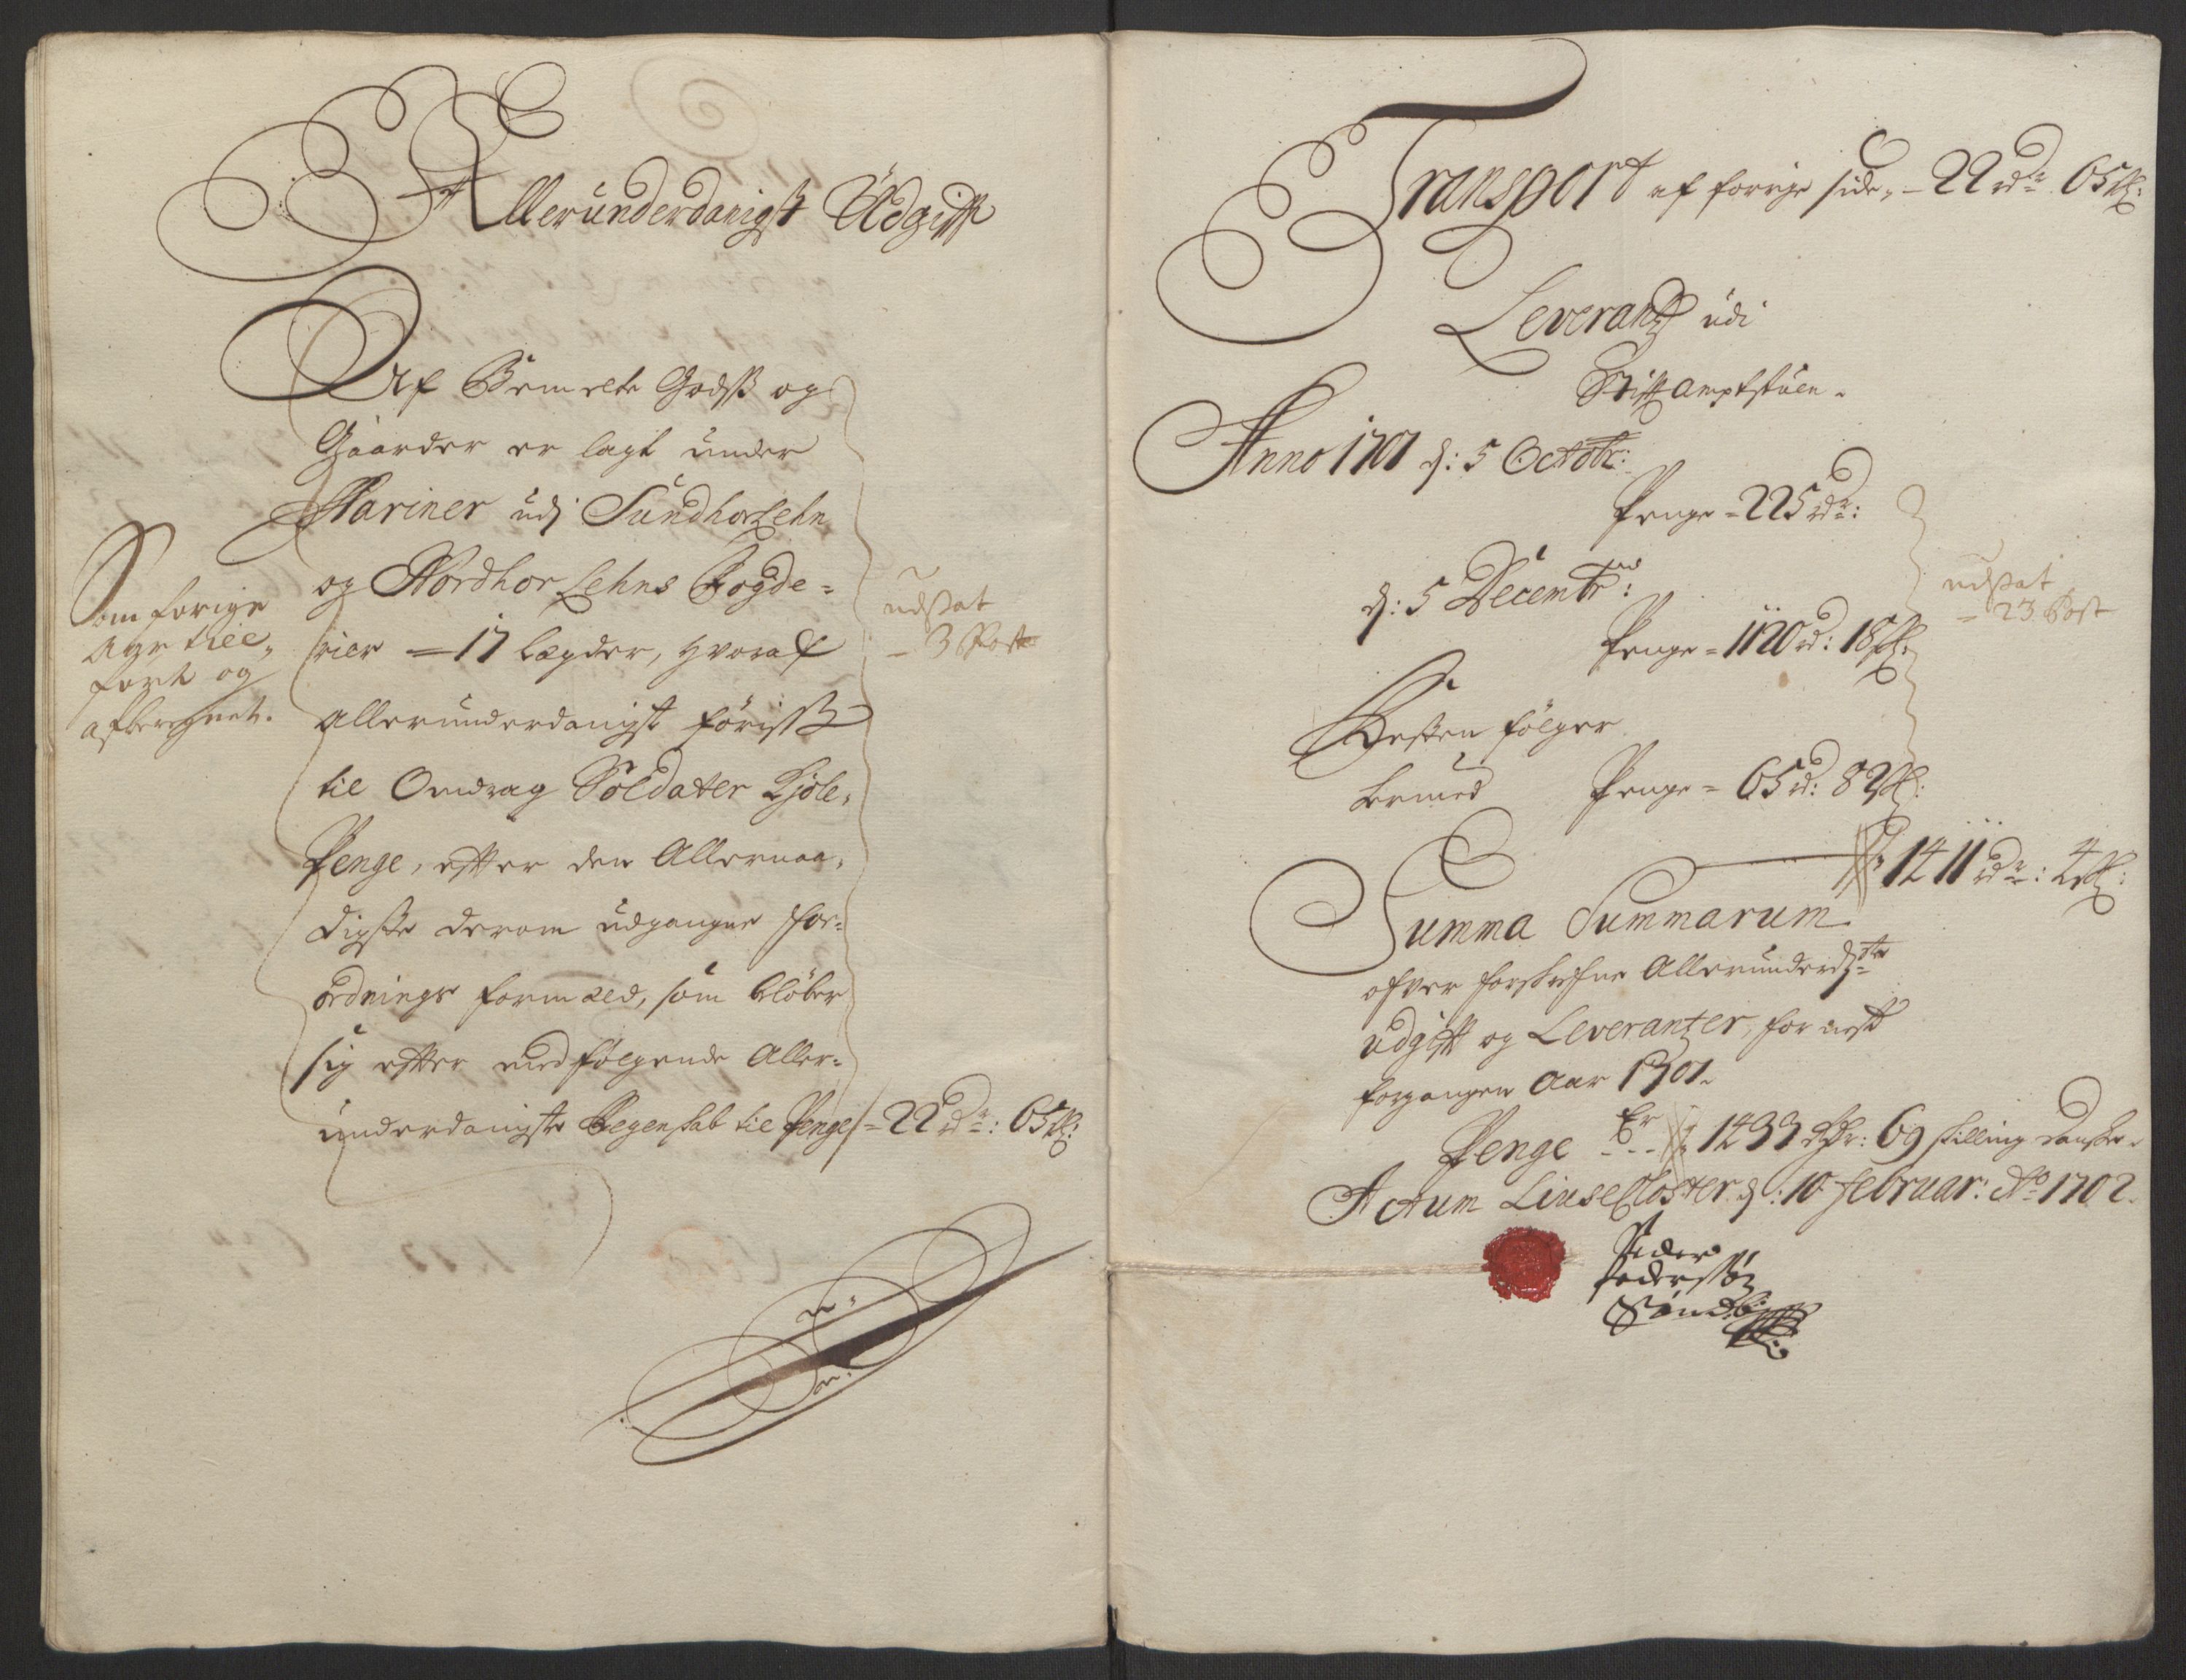 Allerunderdanigst Udgift
Af Bemelte Godtz og
Gaarder er lagt under
Mariner udj Sundhorlehn
og Nordhor Lehns Fogde=
rier = 17 Lægder, hvoraf
allerunderdanigst føriss
til Omdrag Soldater Kjole,
Penge, efter den Allernaa,
digste derom udgangne For=
ordnings formæld, som beløber
sig efter medfølgende Aller=
underdanigste Regenskab til Penge = 22 rdr: 65 s:
Som forige
Aar till,
ført og
afberegnet.
udsat
= 3 Post
Transport af forrige side, = 22 rdr 65 s:
Leverantz udi
Stiftamptstuen.
Anno 1701 d: 5 Octobr:
Penge = 225 rdr:
d: 5 Decembr:
Penge = 1120 rd: 18 s:
Resten følger
hermed Penge = 65 rd: 82 s:
1411 rdr: 4 s:
udsat
= 23 Post
Summa Summarum
ofver forskrefne Allerunderdste
udgift og Leverantzer, for nest
forgangen Aar 1701.
Er
Penge --- 1433 Rdr: 69 skilling danske.
Actum Liuse Closter d: 10 Februar: Ao 1702.
Peder
Pedersøn